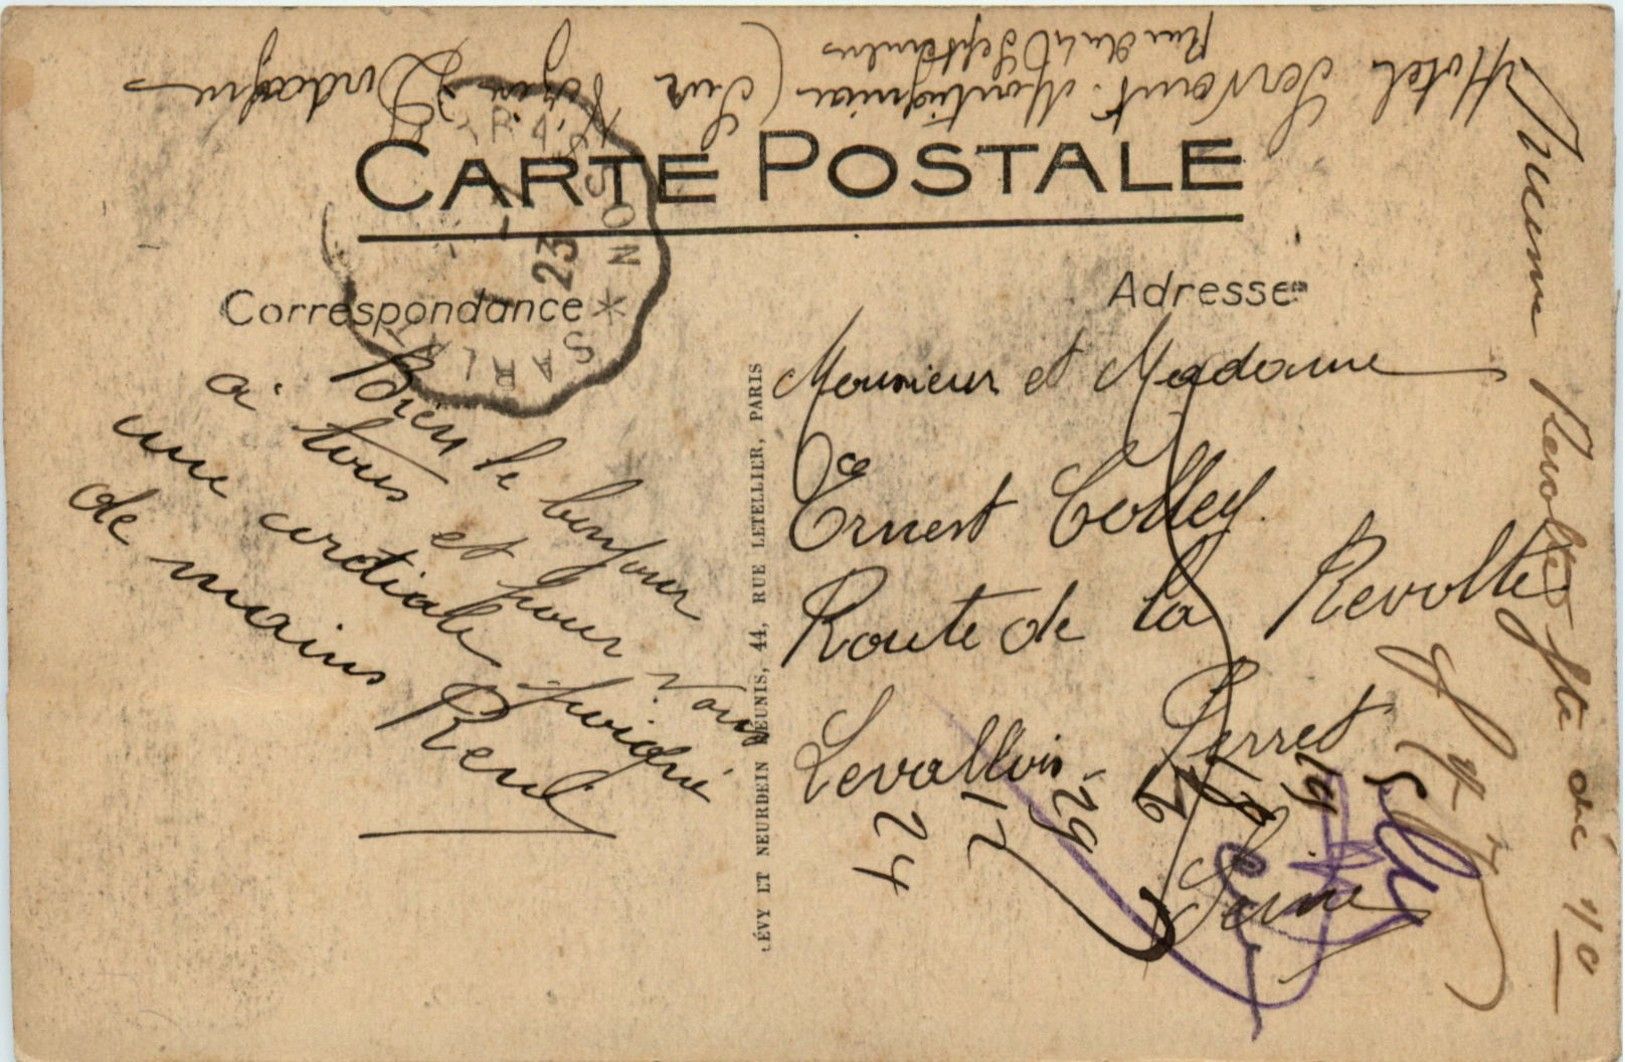 Hotel Servant. Montignac (sur Vézère) Dordogne
Rue du 4 Septembre
CARTE POSTALE
Correspondance
Adresse
Bien le bonjour
à tous et pour vous
une cordiale poignée
de mains
René
LÉVY ET NEURDEIN RÉUNIS, 44, RUE LETELLIER, PARIS
Monsieur et Madame
Ernest Colley.
Route de la Revolte
Levallois-Perret
Seine
SARLAT
23
29
12
24